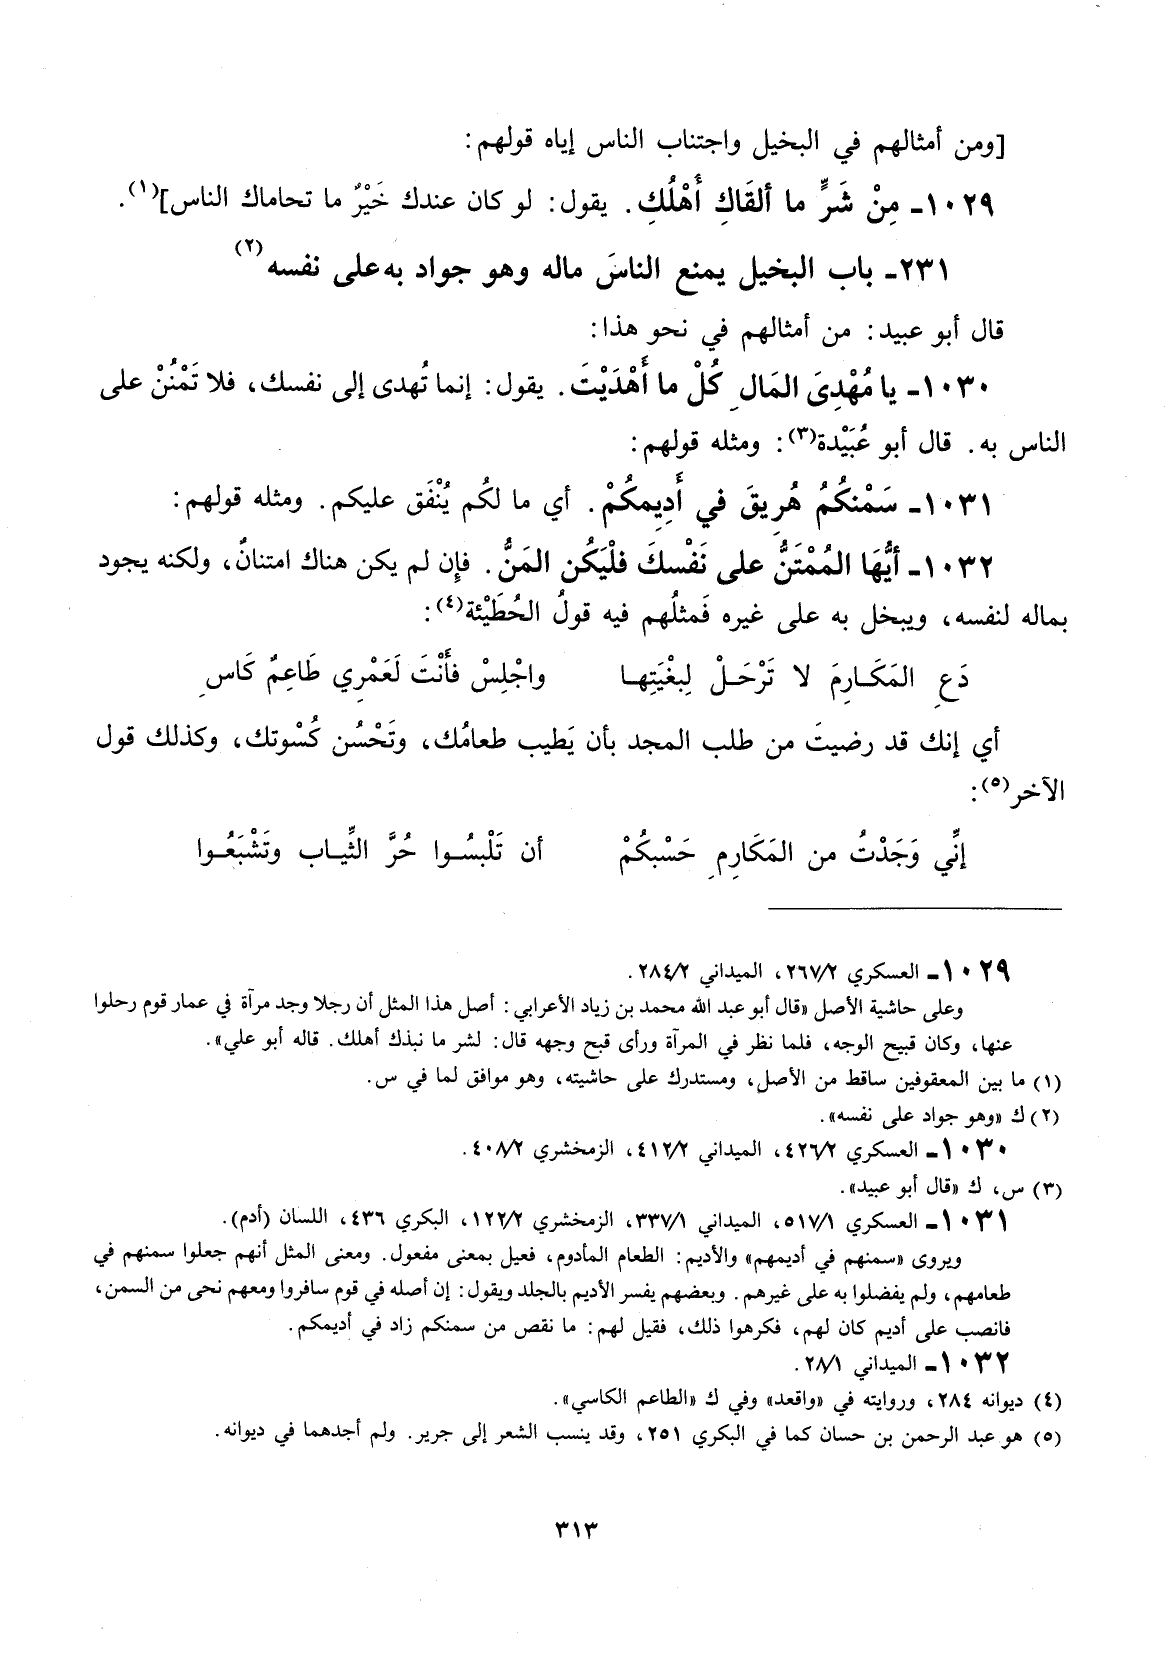 [ومن أمثالهم في البخيل واجتناب الناس إياه قولهم:
١٠٢٩ـ مِنْ شَرٍّ ما ألقَاكِ أَهْلُكِ. يقول: لو كان عندك خَيْرٌ ما تحاماك الناس](١).
٢٣١ـ باب البخيل يمنع الناسَ ماله وهو جواد به على نفسه(٢)
قال أبو عبيد: من أمثالهم في نحو هذا:
١٠٣٠ـ يا مُهْدِيَ المَالِ كُلْ ما أَهْدَيْتَ. يقول: إنما تُهدى إلى نفسك، فلا تَمْنُنْ على
الناس به. قال أبو عُبَيْدة(٣): ومثله قولهم:
١٠٣١ـ سَمْنكُمُ هُرِيقَ في أَدِيمكُمْ. أي ما لكُم يُنْفَق عليكم. ومثله قولهم:
١٠٣٢ـ أيُّهَا المُمْتَنُّ على نَفْسكَ فلْيَكُن المَنُّ. فإن لم يكن هناك امتنانٌ، ولكنه يجود
بماله لنفسه، ويبخل به على غيره فَمثلُهم فيه قولُ الحُطَيْئة(٤):
دَعِ المَكَارِمَ لا تَرْحَلْ لِبغْيَتِها واجْلِسْ فأَنْتَ لَعَمْرِي طَاعِمٌ كَاسِ
أي إنك قد رضيتَ من طلب المجد بأن يَطيب طعامُك، وتَحْسُن كُسْوتك، وكذلك قول
الآخر(٥):
إنِّي وَجَدْتُ من المَكَارِمِ حَسْبكُمْ أن تَلْبسُوا حُرَّ الثِّياب وتَشْبَعُوا
١٠٢٩ـ العسكري ٢/٢٦٧، الميداني ٢/٢٨٤.
وعلى حاشية الأصل «قال أبو عبد الله محمد بن زياد الأعرابي: أصل هذا المثل أن رجلا وجد مرآة في عمار قوم رحلوا
عنها، وكان قبيح الوجه، فلما نظر في المرآة ورأى قبح وجهه قال: لشر ما نبذك أهلك. قاله أبو علي».
(١) ما بين المعقوفين ساقط من الأصل، ومستدرك على حاشيته، وهو موافق لما في س.
(٢) ك «وهو جواد على نفسه».
١٠٣٠ـ العسكري ٢/٤٢٦، الميداني ٢/٤١٢، الزمخشري ٢/٤٠٨.
(٣) س، ك «قال أبو عبيد».
١٠٣١ـ العسكري ١/٥١٧، الميداني ١/٣٣٧، الزمخشري ٢/١٢٢، البكري ٤٣٦، اللسان (أدم).
ويروى «سمنهم في أديمهم» والأديم: الطعام المأدوم، فعيل بمعنى مفعول. ومعنى المثل أنهم جعلوا سمنهم في
طعامهم، ولم يفضلوا به على غيرهم. وبعضهم يفسر الأديم بالجلد ويقول: إن أصله في قوم سافروا ومعهم نحى من السمن،
فانصب على أديم كان لهم، فكرهوا ذلك، فقيل لهم: ما نقص من سمنكم زاد في أديمكم.
١٠٣٢ـ الميداني ١/٢٨.
(٤) ديوانه ٢٨٤، وروايته في «واقعد» وفي ك «الطاعم الكاسي».
(٥) هو عبد الرحمن بن حسان كما في البكري ٢٥١، وقد ينسب الشعر إلى جرير. ولم أجدهما في ديوانه.
٣١٣